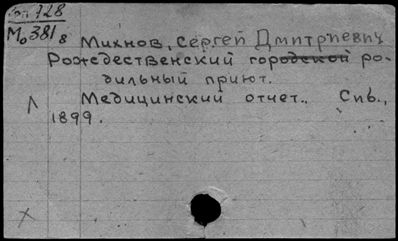 М₀381₈
Михнов, Сергей Дмитриевич
Рождественский городской ро-
дильный приют.
Медицинский отчет., Спб.,
1899.